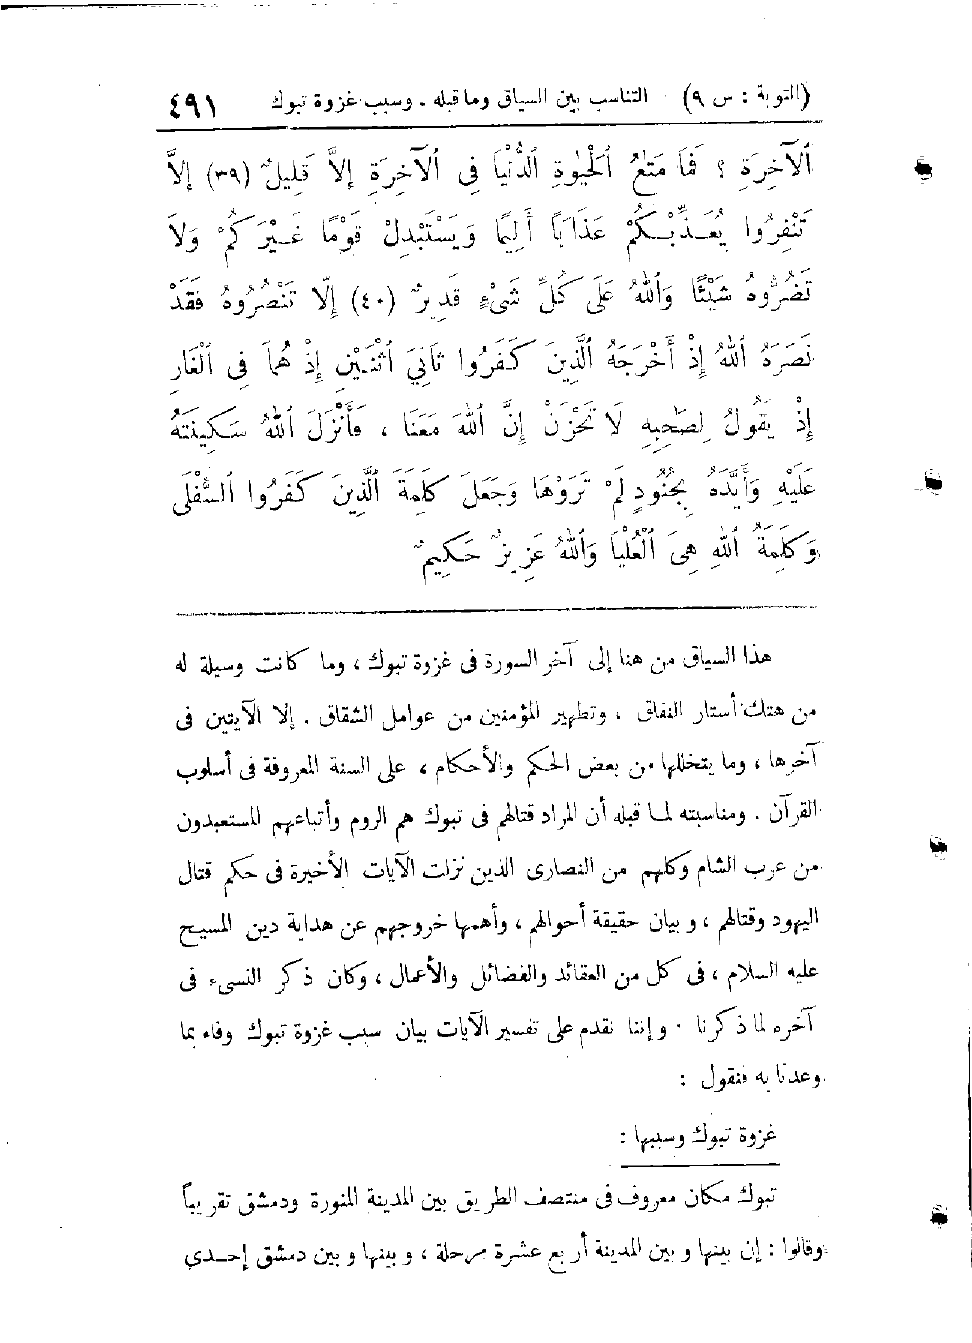 (التوبة : س ٩) التناسب بين السياق وما قبله . وسبب غزوة تبوك ٤٩١
ٱلْآخِرَةِ ؟ فَمَا مَتَٰعُ ٱلْحَيَوٰةِ ٱلدُّنْيَا فِى ٱلْآخِرَةِ إِلَّا قَلِيلٌ (٣٩) إِلَّا
تَنْفِرُوا يُعَذِّبْكُمْ عَذَابًا أَلِيمًا وَيَسْتَبْدِلْ قَوْمًا غَيْرَكُمْ وَلَا
تَضُرُّوهُ شَيْئًا وَٱللهُ عَلَى كُلِّ شَىْءٍ قَدِيرٌ (٤٠) إِلَّا تَنْصُرُوهُ فَقَدْ
نَصَرَهُ ٱللهُ إِذْ أَخْرَجَهُ ٱلَّذِينَ كَفَرُوا ثَانِيَ ٱثْنَيْنِ إِذْ هُمَا فِى ٱلْغَارِ
إِذْ يَقُولُ لِصَٰحِبِهِ لَا تَحْزَنْ إِنَّ ٱللهَ مَعَنَا ، فَأَنْزَلَ ٱللهُ سَكِينَتَهُ
عَلَيْهِ وَأَيَّدَهُ بِجُنُودٍ لَمْ تَرَوْهَا وَجَعَلَ كَلِمَةَ ٱلَّذِينَ كَفَرُوا ٱلسُّفْلَى
وَكَلِمَةُ ٱللهِ هِىَ ٱلْعُلْيَا وَٱللهُ عَزِيزٌ حَكِيمٌ
هذا السياق من هنا إلى آخر السورة فى غزوة تبوك ، وما كانت وسيلة له
من هتك أستار النفاق ، وتطهير المؤمنين من عوامل الشقاق . إلا الآيتين فى
آخرها ، وما يتخللها من بعض الحكم والأحكام ، على السنة المعروفة فى أسلوب
القرآن . ومناسبته لما قبله أن المراد قتالهم فى تبوك هم الروم وأتباعهم المستعبدون
من عرب الشام وكلهم من النصارى الذين نزلت الآيات الأخيرة فى حكم قتال
اليهود وقتالهم ، وبيان حقيقة أحوالهم ، وأهمها خروجهم عن هداية دين المسيح
عليه السلام ، فى كل من العقائد والفضائل والأعمال ، وكان ذكر النسىء فى
آخره لما ذكرنا . وإننا نقدم على تفسير الآيات بيان سبب غزوة تبوك وفاء بما
وعدنا به فنقول :
غزوة تبوك وسببها :
تبوك مكان معروف فى منتصف الطريق بين المدينة المنورة ودمشق تقريباً
وقالوا : إن بينها وبين المدينة أربع عشرة مرحلة ، وبينها وبين دمشق إحـدى